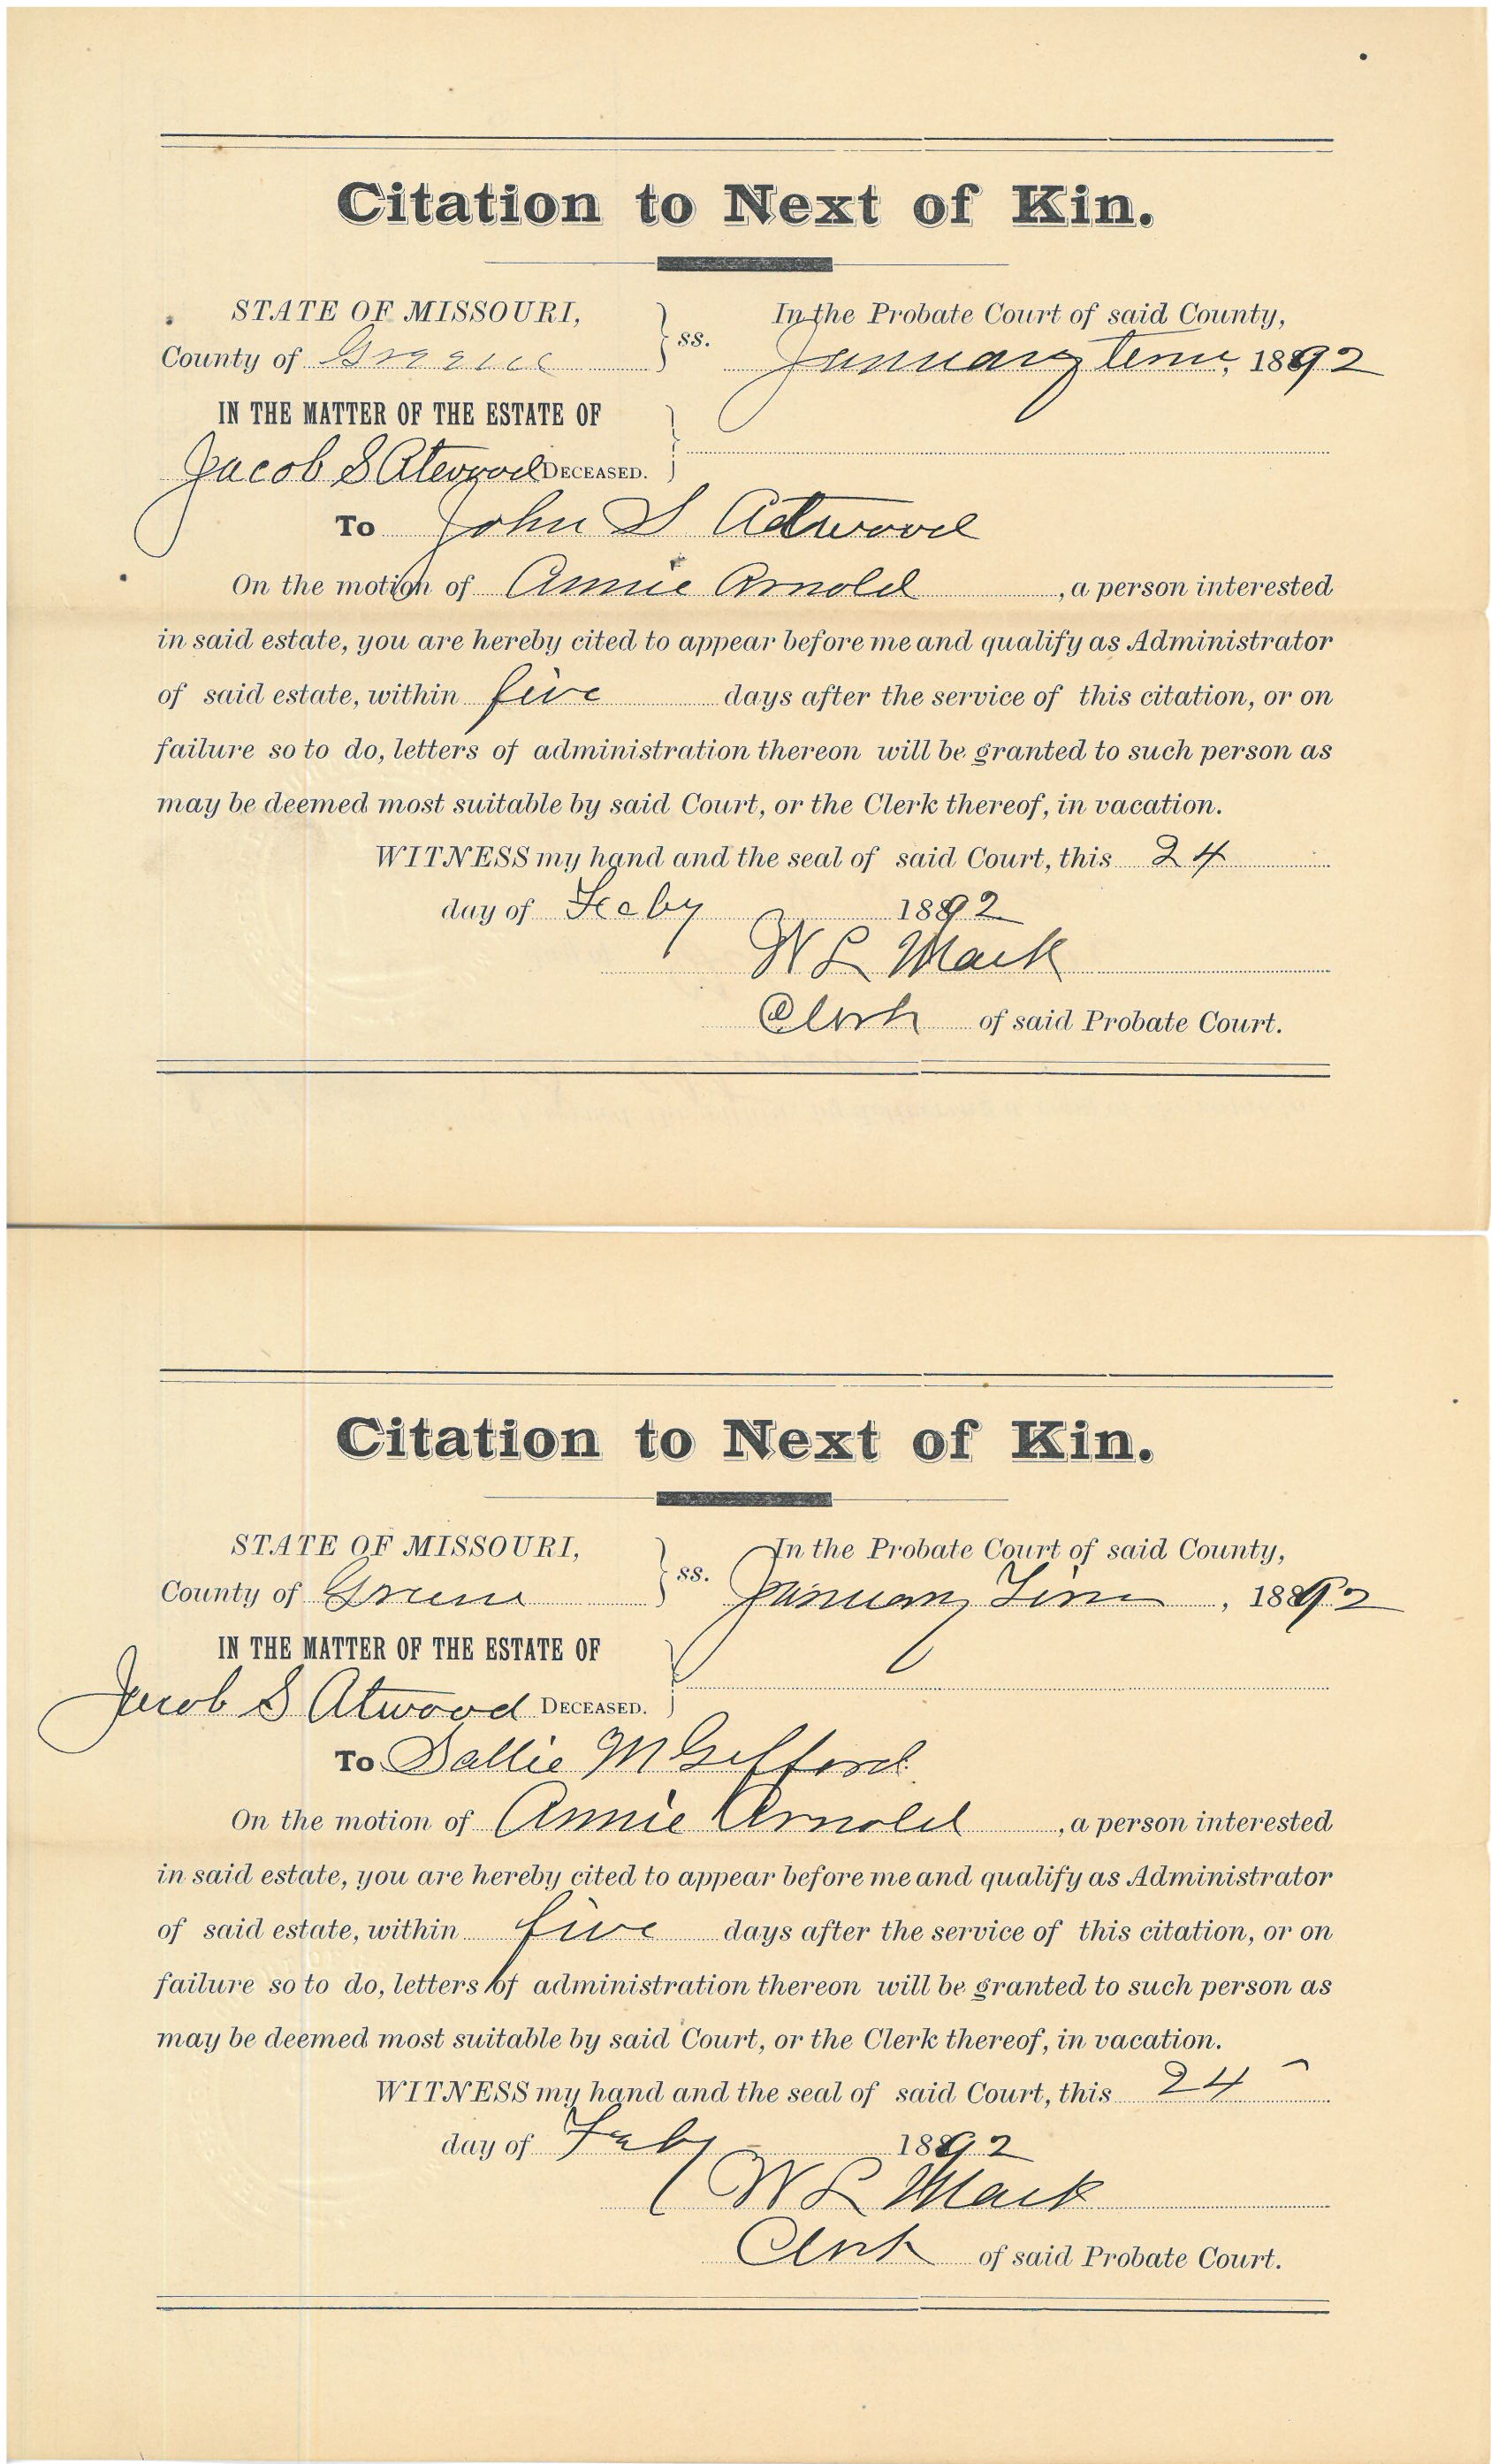 Citation to Next of Kin.
STATE OF MISSOURI,
County of Greene
ss.
In the Probate Court of said County,
January term, 1892
IN THE MATTER OF THE ESTATE OF
Jacob S Atwood DECEASED.
To John S Atwood
On the motion of Annie Arnold, a person interested
in said estate, you are hereby cited to appear before me and qualify as Administrator
of said estate, within five days after the service of this citation, or on
failure so to do, letters of administration thereon will be granted to such person as
may be deemed most suitable by said Court, or the Clerk thereof, in vacation.
WITNESS my hand and the seal of said Court, this 24
day of Feby 1892
W L Mack
Clerk of said Probate Court.
Citation to Next of Kin.
STATE OF MISSOURI,
County of Greene
ss.
In the Probate Court of said County,
January Term, 1892
IN THE MATTER OF THE ESTATE OF
Jacob S Atwood DECEASED.
To Sallie M Gifford
On the motion of Annie Arnold, a person interested
in said estate, you are hereby cited to appear before me and qualify as Administrator
of said estate, within five days after the service of this citation, or on
failure so to do, letters of administration thereon will be granted to such person as
may be deemed most suitable by said Court, or the Clerk thereof, in vacation.
WITNESS my hand and the seal of said Court, this 24
day of Feby 1892
W L Mack
Clerk of said Probate Court.